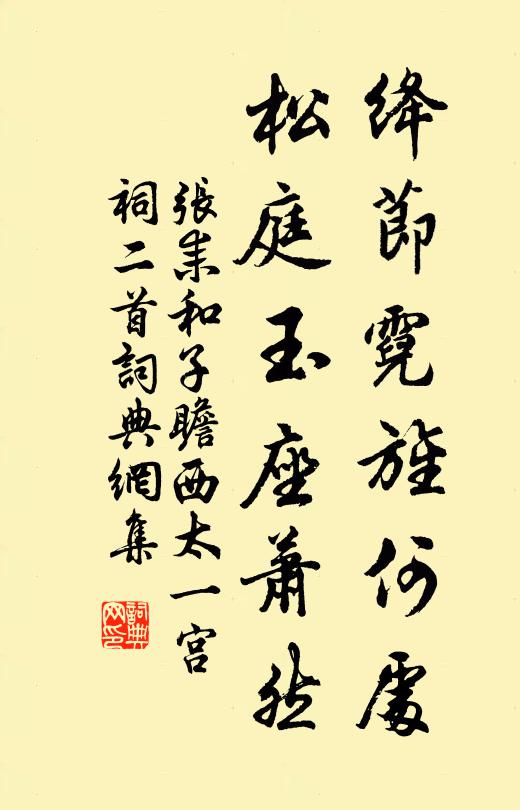 绛節霓旌何處
松庭玉座蕭然
張耒和子瞻西太一宮
祠二首詞典網集
詞典網印